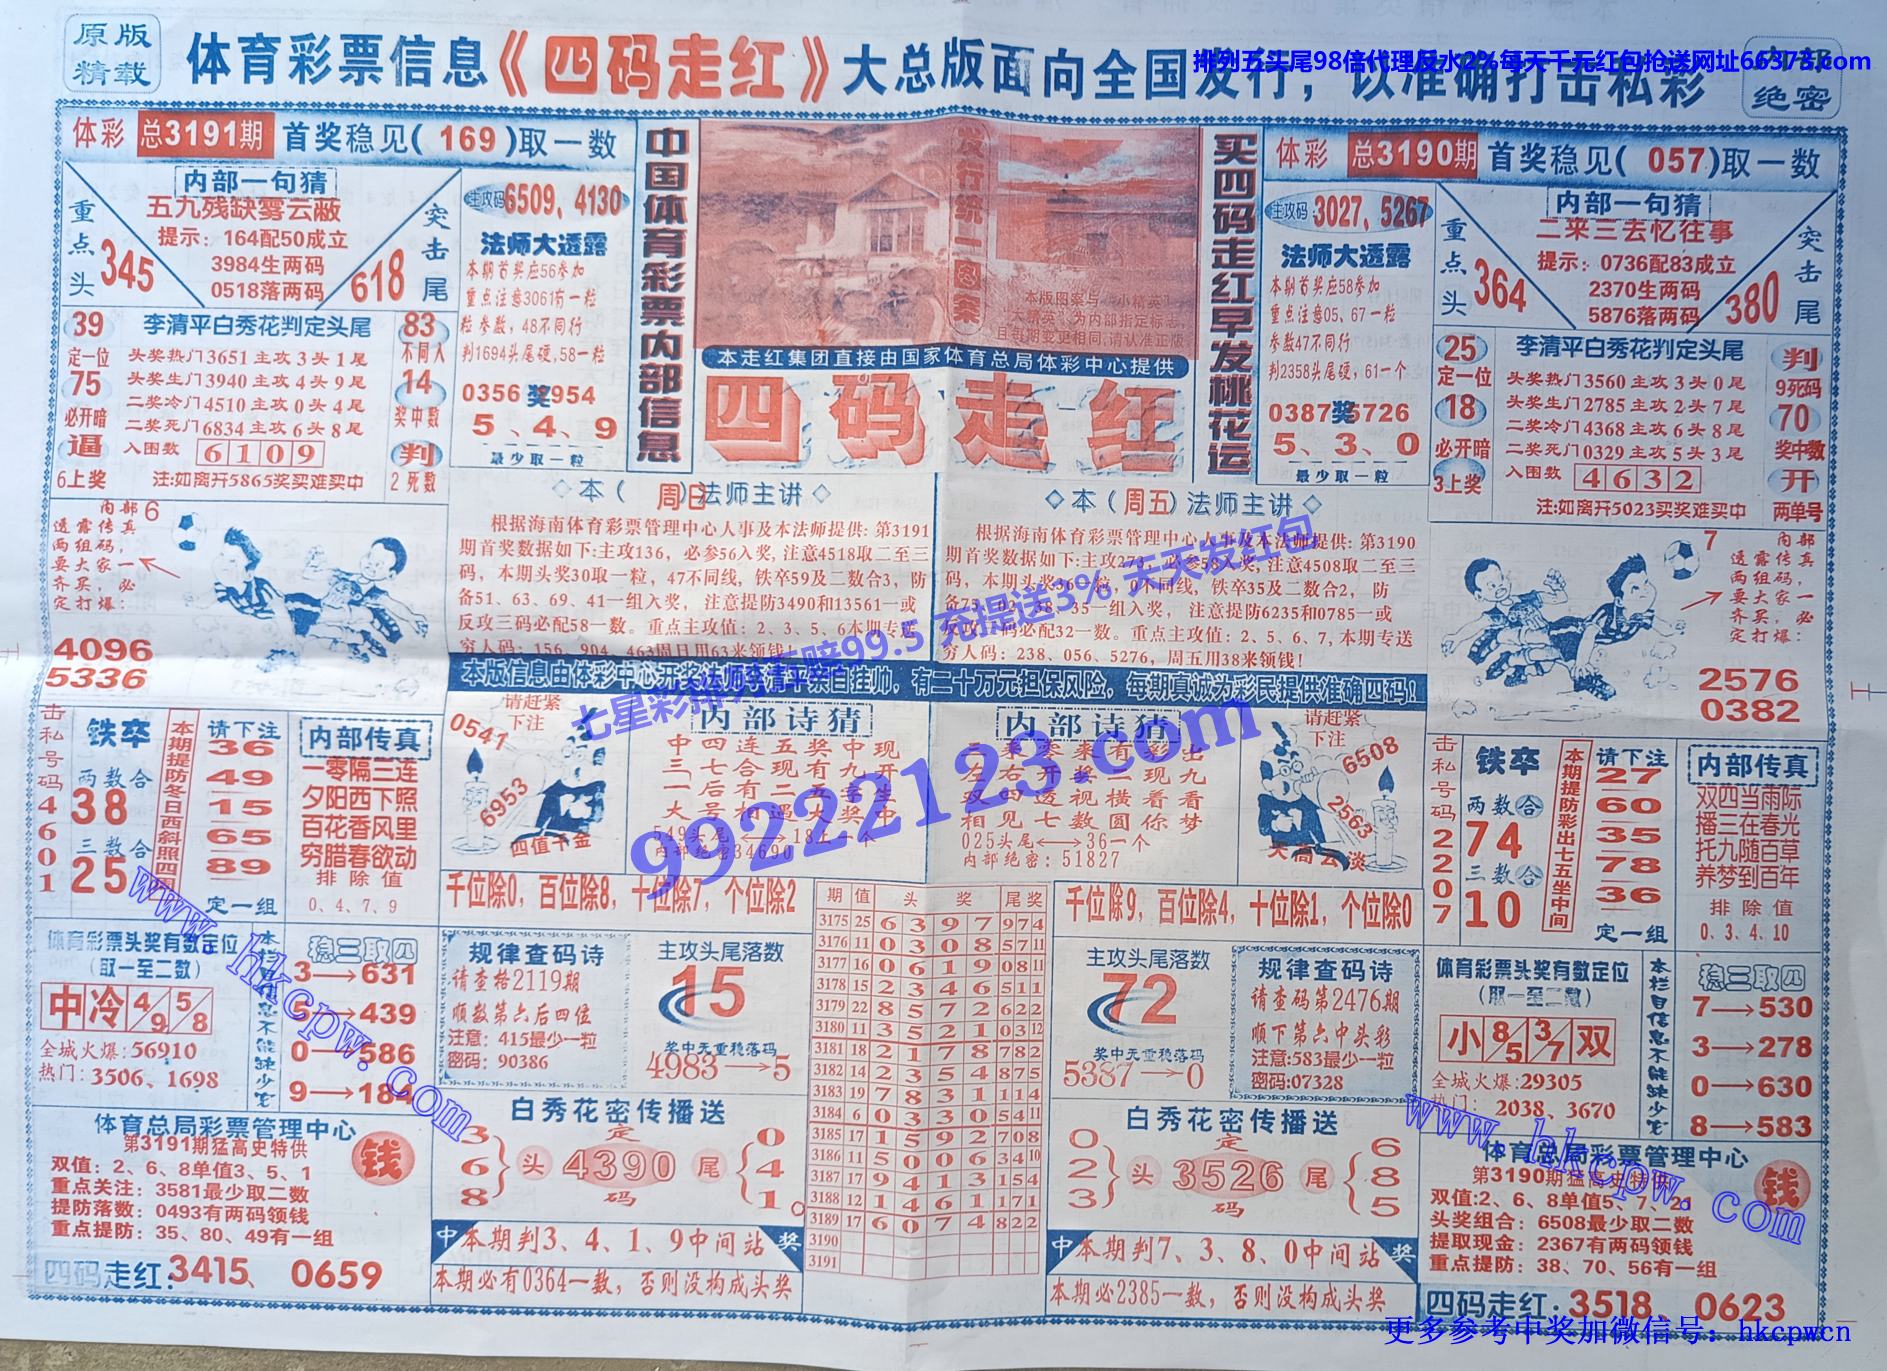 原版
精载
体育彩票信息《四码走红》大总版面向全国发行，以准确打击私彩
绝密
排列五头尾98倍代理反水2%每天千元红包抢送网址66373.com
体彩 总3191期 首奖稳见(169)取一数
内部一句猜
五九残缺雾云蔽
提示：164配50成立
3984生两码
0518落两码
重点头
345
突击尾
618
主攻码 6509、4130
法师大透露
本期首奖应56参加
重点注意3061有一粒
粒参数，48不同行
判1694头尾硬,58一粒
0356 奖 954
5、4、9
最少取一粒
39
定一位
75
必开暗
逼
6上奖
李清平白秀花判定头尾
头奖热门3651主攻3头1尾
头奖生门3940主攻4头9尾
二奖冷门4510主攻0头4尾
二奖死门6834主攻6头8尾
入围数 6109
注:如离开5865奖买难买中
83
不同人
14
奖中数
判
2死数
中国体育彩票内部信息
发行统一图案
本版图案与“小精英”
“大精英”为内部指定标志,
且每期变更相同,请认准正版
本走红集团直接由国家体育总局体彩中心提供
四码走红
买四码走红早发桃花运
体彩 总3190期 首奖稳见(057)取一数
主攻码 3027、5267
法师大透露
本期首奖应58参加
重点注意05、67一粒
参数47不同行
判2358头尾硬，61一个
0387奖5726
5、3、0
最少取一粒
内部一句猜
二来三去忆往事
提示：0736配83成立
2370生两码
5876落两码
重点头
364
突击尾
380
25
定一位
18
必开暗
3上奖
李清平白秀花判定头尾
头奖热门3560主攻3头0尾
头奖生门2785主攻2头7尾
二奖冷门4368主攻6头8尾
二奖死门0329主攻5头3尾
入围数 4632
注:如离开5023买奖难买中
判
9死码
70
奖中数
开
两单号
内部 6
透露传真
两组码，
要大家一
齐买，必
定打爆：
4096
5336
◇本（周日）法师主讲◇
根据海南体育彩票管理中心人事及本法师提供：第3191
期首奖数据如下:主攻136，必参56入奖，注意4518取二至三
码，本期头奖30取一粒，47不同线，铁卒59及二数合3，防
备51、63、69、41一组入奖，注意提防3490和13561一或
反攻三码必配58一数。重点主攻值：2、3、5、6本期专送
穷人码：156、904、463周日用63来领钱!
◇本（周五）法师主讲◇
根据海南体育彩票管理中心人事及本法师提供：第3190
期首奖数据如下:主攻273，必参58入奖,注意4508取二至三
码，本期头奖36一粒，0不同线，铁卒35及二数合2，防
备75、02、38、35一组入奖，注意提防6235和0785一或
反攻三码必配32一数。重点主攻值：2、5、6、7,本期专送
穷人码：238、056、5276，周五用38来领钱!
本版信息由体彩中心开奖法师李清平亲自挂帅，有二十万元担保风险，每期真诚为彩民提供准确四码！
7 内部
透露传真
两组码，
要大家一
齐买，必
定打爆：
2576
0382
击私号码4601
铁卒
两数合
38
三数合
25
本期提防冬日西斜照四
请下注
36
49
15
65
89
定一组
内部传真
一零隔三连
夕阳西下照
百花香风里
穷腊春欲动
排除值
0、4、7、9
请赶紧
下注
0541
6953
四值千金
内部诗猜
中四连五奖中现
三七合现有九开
一后有二五幸生
大号相遇大奖中
549头尾⟷18一个
内部绝密34690
内部诗猜
左右开奖二现九
双四透视横着看
相见七数圆你梦
025头尾⟷36一个
内部绝密:51827
请赶紧
下注
6508
2563
天高云淡
击私号码2207
铁卒
两数合
74
三数合
10
本期提防彩出七五坐中间
请下注
27
60
35
78
36
定一组
内部传真
双四当雨际
播三在春光
托九随百草
养梦到百年
排除值
0、3、4、10
千位除0，百位除8，十位除7，个位除2
千位除9，百位除4，十位除1，个位除0
期 值 头奖 尾奖
3175 25 6 3 9 7 974
3176 11 0 3 0 8 5711
3177 16 0 6 1 9 0811
3178 15 2 3 4 6 511
3179 22 8 5 7 2 622
3180 11 3 5 2 1 0312
3181 18 2 1 7 8 782
3182 14 2 3 5 4 875
3183 19 7 8 3 1 114
3184 6 0 3 3 0 5411
3185 17 1 5 9 2 708
3186 11 5 0 0 6 3410
3187 17 9 4 1 3 154
3188 12 1 4 6 1 171
3189 17 6 0 7 4 822
3190
3191
体育彩票头奖有数定位
(取一至二数)
中冷4/9 5/8
全城火爆:56910
热门：3506、1698
本栏目信息不能缺少它
稳三取四
3→631
5→439
0→586
9→184
规律查码诗
请查格2119期
顺数第六后四位
注意：415最少一粒
密码：90386
主攻头尾落数
15
奖中无重稳落码
4983→5
主攻头尾落数
72
奖中无重稳落码
5387→0
规律查码诗
请查码第2476期
顺下第六中头彩
注意:583最少一粒
密码:07328
体育彩票头奖有数定位
(取一至二数)
小8/5 3/7双
全城火爆:29305
热门：2038、3670
本栏目信息不能缺少它
稳三取四
7→530
3→278
0→630
8→583
体育总局彩票管理中心
第3191期猛高史特供
钱
双值：2、6、8单值3、5、1
重点关注：3581最少取二数
提防落数：0493有两码领钱
重点提防：35、80、49有一组
四码走红:3415、0659
白秀花密传播送
3
6
8
头
定
4390
码
尾
0
4
1。
中 本期判3、4、1、9中间站 奖
本期必有0364一数，否则没构成头奖
白秀花密传播送
0
2
3
头
定
3526
码
尾
6
8
5
中 本期判7、3、8、0中间站 奖
本期必2385一数，否则没构成头奖
体育总局彩票管理中心
第3190期猛高史特供
钱
双值:2、6、8单值5、7、21
头奖组合：6508最少取二数
提取现金：2367有两码领钱
重点提防：38、70、56有一组
四码走红:3518、0623
99222123.com
www.hkcpw.com
www.hkcpw.com
更多参考中奖加微信号：hkcpwcn